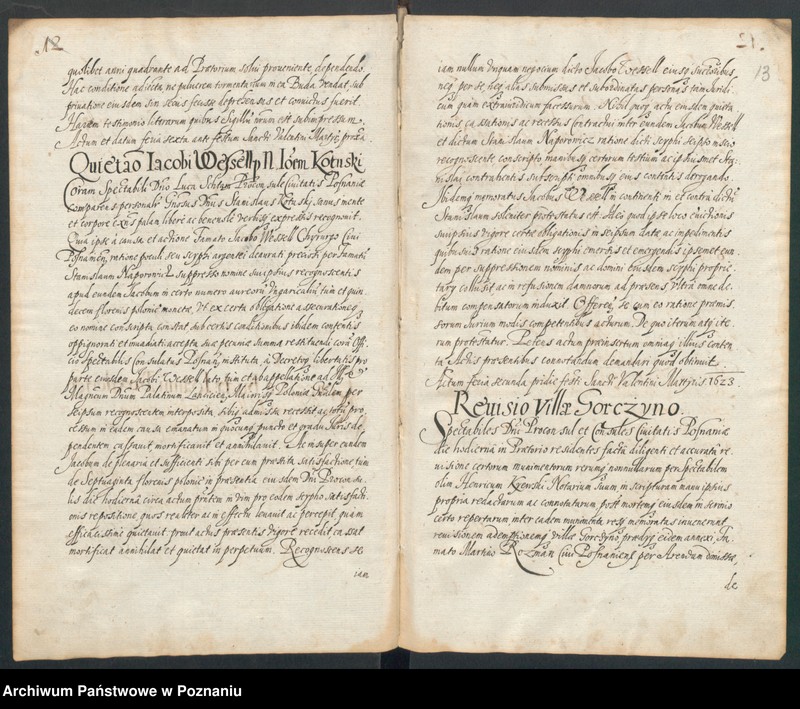 12
quolibet anni quadrante ad Prætorium solui proueniente, dependendo.
Hac conditione adiecta, ne puluerem tormentarium in ea Buda vendat sub
priuatione eiusdem si in secus fecisse deprehensus et conuictus fuerit.
Harum testimonio literarum quibus Sigillum est subimpressum.
Actum et datum feria sexta ante festum Sancti Valentini
Quietao Iacobi Wessell p N. Kotuski
Coram Spectabile Dno Luca Procon sule Ciuitatis Posnaniæ
comparens personalr Dnus Stanislaus Kotuski, sanus mente
et corpore palam libere ac beneuole verbisq expressis recognouit.
Quia ipse a causa et actione Iacobo Wessell Chyrurgo Ciui
Posnanien, ratione poculi seu scyphi argentei deaurati per
Stanislaum Naporowicz suppresso nomine suo ipsius recognoscentis
apud eundem Iacobum in certo numero aureorum Vngaricaliu tum et quin
decem florenis polonic monetæ, vt ex certa obligatione assecurationeq
eo nomine conscripta constat sub certis conditionibus ibidem contentis
oppignorati et in accepta sua pecuniæ summa restituendi corā Offi
cio Spectabilis Consulatus Posnan, instituta, à Decretoq
parte eiusdem Iacobi Wessell lato, tum et ab appellatione ad
Magncum Dnum Palatinum Lancicien, Maioris Poloniæ per
seipsum recognoscentem interposita sibiq admissa recessit
cessum in eadem causa emanatum in quocunq puncto et gradu iuris de
pendentem cassauit mortificauit et annihilauit. Ac insuper eundem
Iacobum de plenaria et sufficienti sibi per eum præstita satisfactione, tum
de Septuaginta florenis polonic in præsentia eiusdem Dni Proconsu
lis die hodierna circa actum in vim pro eodem scypho satisfacti
onis repositione, quos realiter ac in effectu leuauit ac percepit, quam
efficatissime quietauit prout actus præsentis vigore recedit cassat
mortificat annihilat et quietat in perpetuum. Recognoscens se
iam
21.
13
iam nullum vnquam negocium dicto Iacobo Wessell eiusq Successoribus,
neq per se, neq alias submissas et subordinatas personas tam Iuridi
cum quam extraiuridicum facessurum. Nihil quoq actu eiusdem quieta
tionis, cassationis ac recessus Contractui inter eundem Iacobum Wessell
et dictum Stanislaum Naporowicz ratione dicti scyphi scripto inito
recognoscente conscripto manibusq certorum testium ac ipsiusmet
nislai contrahentis subscripti, omnibusq eius contentis derogando.
Ibidemq memoratus Iacobus Wessell in continenti in et contra dictum
Stanislaum solenniter protestatus est. Quod ipse loco euictionis
suiipsius vigore certæ obligationis in seipsum datæ ac impedimentis
quibusuis ratione eiusdem scyphi emersis et emergendis ipsemet eun
dem per suppressionem nominis ac domini eiusdem scyphi proprie
tarij collusit ac in refusionem damnorum ad præsens vltra omne de
bitum compensatorum induxit. Offerens, se cum eo ratione præmis
sorum Iurium modis competentibus acturum. De quo iterum atq ite
rum protestatur. Petens actum præinsertum omniaq illius conten
ta, Actis præsentibus connotandum demandari quod obtinuit.
Actum feria secunda pridie festi Sancti Valentini Martyris 1623.
Reuisio Villæ Gorczyno.
Spectabiles Dni Procon sul et Consules Ciuitatis Posnaniæ
die hodierna in Prætorio residentes facta diligenti et accurata re
uisione certorum munimentorum rerumq nonnullarum per Spectabilem
olim Henricum Notarium suum in scripturam manu ipsius
propria redactarum ac connotatarum, post mortemq eiusdem in scrinio
certo repertarum inter eadem munimenta resq memoratas inuenerunt
reuisionem ademptionemq villæ Gorczyno prædijq eidem annexi
mato Martino Rozman Ciui Posnanien per Arendam dimissæ,
de
Archiwum Państwowe w Poznaniu